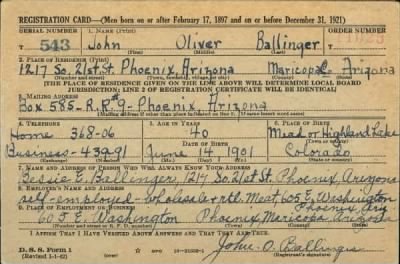 REGISTRATION CARD—(Men born on or after February 17, 1897 and on or before December 31, 1921)
SERIAL NUMBER 1. NAME (Print) ORDER NUMBER
T 543 John Oliver Ballinger
(First) (Middle) (Last)
2. PLACE OF RESIDENCE (Print)
1217 So. 21st. St. Phoenix, Arizona Maricopa Arizona
(Number and street) (Town, township, village, or city) (County) (State)
[THE PLACE OF RESIDENCE GIVEN ON THE LINE ABOVE WILL DETERMINE LOCAL BOARD
JURISDICTION; LINE 2 OF REGISTRATION CERTIFICATE WILL BE IDENTICAL]
3. MAILING ADDRESS
Box 585-R.R.#9-Phoenix, Arizona
4. TELEPHONE 5. AGE IN YEARS 6. PLACE OF BIRTH
Home 368-06 40 Mead or Highland Lake
DATE OF BIRTH
Business-43991 June 14 1901 Colorado
7. NAME AND ADDRESS OF PERSON WHO WILL ALWAYS KNOW YOUR ADDRESS
E. Ballinger, 1217 So. 21st St. Phoenix, Arizona
8. EMPLOYER'S NAME AND ADDRESS
self-employed-wholesale+rtl. Meat, 605 E. Washington
Phoenix, Ariz
9. PLACE OF EMPLOYMENT OR BUSINESS
605 E. Washington Phoenix, Maricopa Arizona
(Number and street or R. F. D. number) (Town) (County) (State)
I AFFIRM THAT I HAVE VERIFIED ABOVE ANSWERS AND THAT THEY ARE TRUE.
John O. Ballinger
D. S. S. Form 1
(Revised 1-1-42) (Registrant's signature)